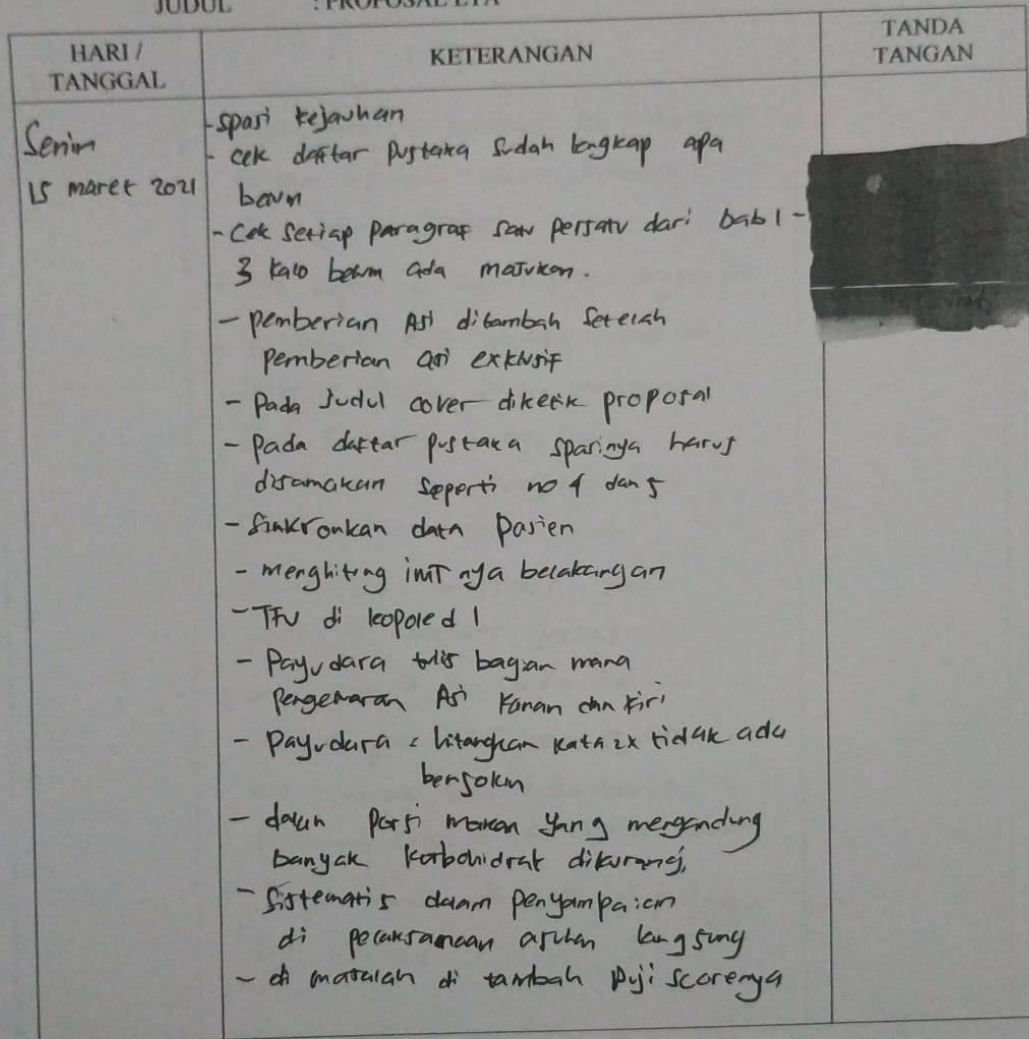 JUDUL : PROPOSAL LTA
HARI / TANGGAL
KETERANGAN
TANDA TANGAN
Senin
15 maret 2021
- spasi kejauhan
- cek daftar pustaka sudah lengkap apa
belum
- Cek setiap paragraf satu persatu dari bab 1 -
3 kalo belum ada masukan.
- pemberian Asi ditambah setelah
pemberian asi exklusif
- Pada Judul cover diketik proposal
- Pada daftar pustaka spasinya harus
disamakan seperti no 4 dan 5
- sinkronkan data pasien
- menghitung imT nya belakangan
- TFU di leopoled 1
- Payudara tulis bagian mana
pengeluaran Asi kanan dan kiri
- Payudara : hilangkan kata2x tidak ada
benjolan
- dalam porsi makan yang mengandung
banyak karbohidrat dikurangi,
- Sistematis dalam penyampaian
di pelaksanaan asuhan langsung
- di masalah di tambah puji scorenya